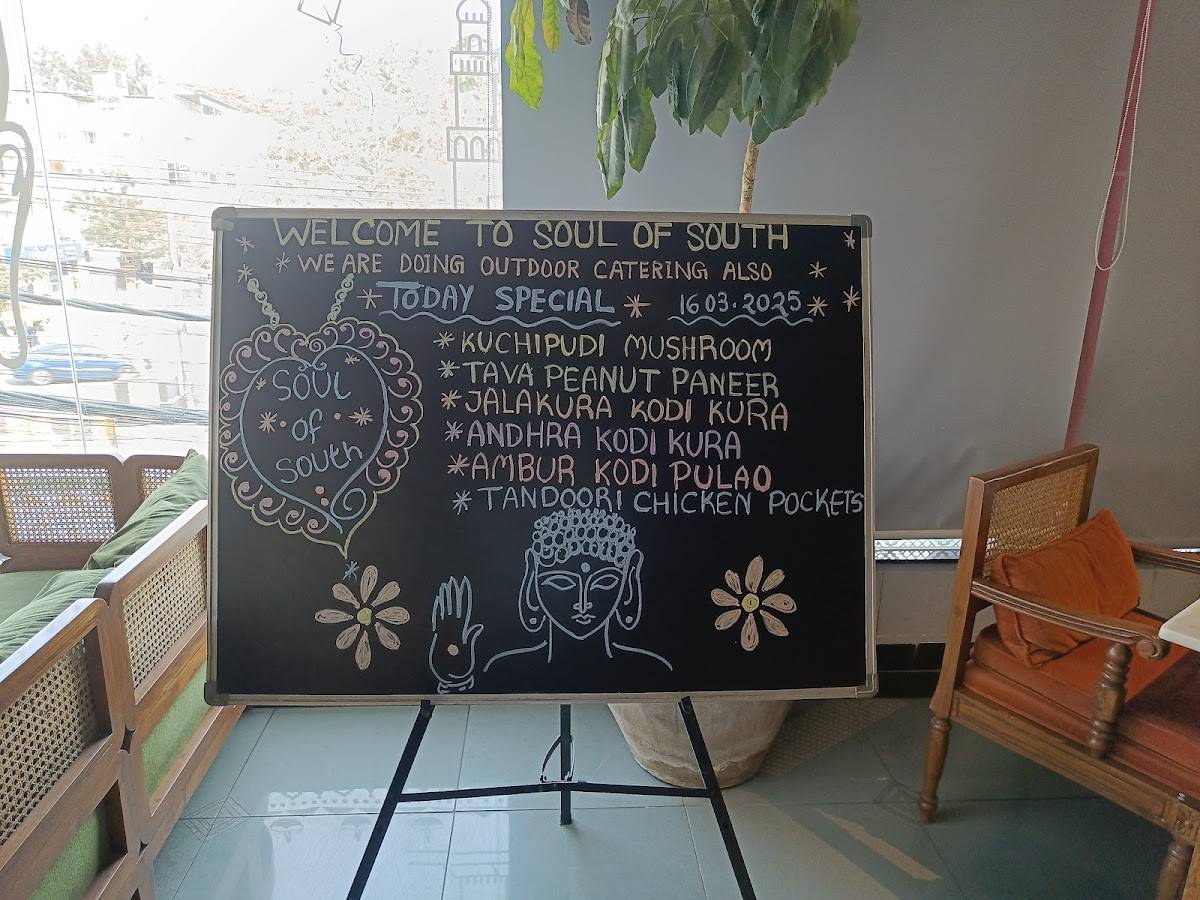 WELCOME TO SOUL OF SOUTH
* WE ARE DOING OUTDOOR CATERING ALSO
* TODAY SPECIAL * 16 03.2025 *
* KUCHIPUDI MUSHROOM
* TAVA PEANUT PANEER
* JALAKURA KODI KURA
* ANDHRA KODI KURA
* AMBUR KODI PULAO
* TANDOORI CHICKEN POCKETS
SOUL
of
South